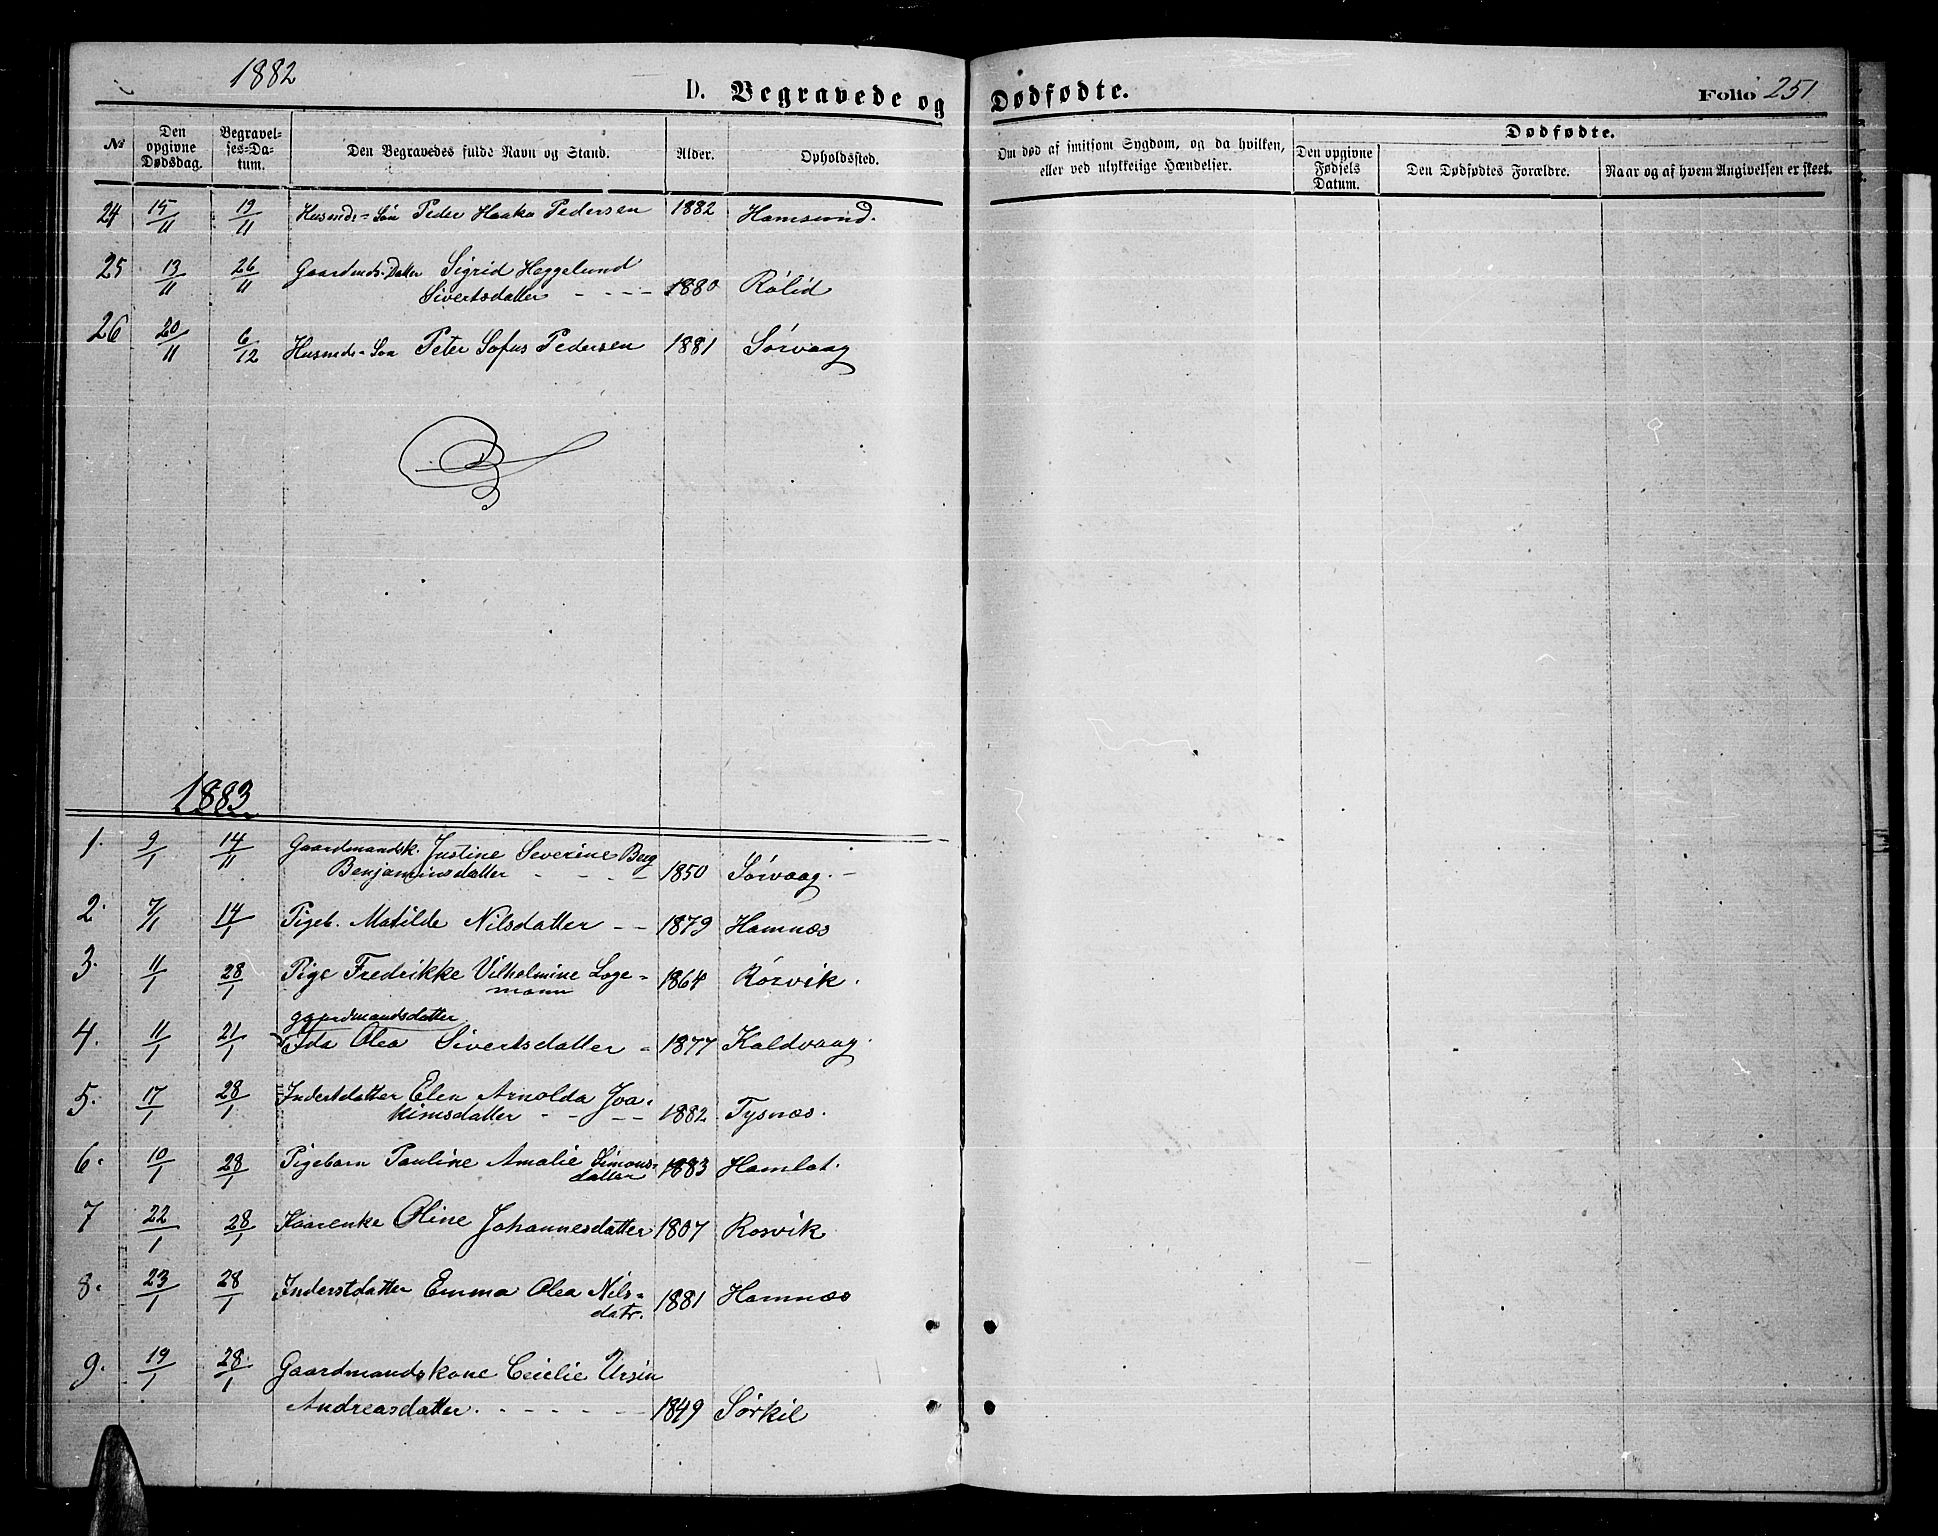 1882
D. Begravede og Dødfødte.
Folio 251
№
Den opgivne Dødsdag.
Begravelses-Datum.
Den Begravedes fulde Navn og Stand.
Alder.
Opholdssted.
Om død af smitsom Sygdom, og da hvilken, eller ved ulykkelige Hændelser.
Dødfødte.
Den opgivne Fødsels Datum.
Den Dødfødtes Forældre.
Naar og af hvem Angivelsen er skeet.
24 15/11 19/11 Husmds-Søn Peder Haako Pedersen 1882 Hamsund.
25 13/11 26/11 Gaardmds-Datter Sigrid Heggelund
Sivertsdatter - - - - 1880 Rølid
26 20/11 6/12 Husmds-Søn Peter Sofus Pedersen 1881 Sørvaag
1883
1. 9/1 14/11 Gaardmandsk. Justine Severine Berg
Benjaminsdatter - - - - 1850 Sørvaag. -
2. 7/11 14/1 Pigeb. Matilde Nilsdatter - - 1879 Hamnæs
3. 11/1 28/1 Pige Fredrikke Vilhelmine Loge= 1864 Røsvik.
mann
gaardmandsdatter
4. 11/1 21/1 Ida Olea Sivertsdatter - 1877 Kaldvaag.
5. 17/1 28/1 Inderstdatter Elen Arnolda Joa-
kimsdatter - - - - 1882 Tysnæs.
6. 10/1 28/1 Pigebarn Pauline Amalie Simons= 1883 Hamlot.
datter
7 22/1 28/1 Kaarenke Oline Johannesdatter 1807 Rosvik
8. 23/1 28/1 Inderstdatter Emma Olea Nils= 1881 Hamnæs
datr.
9. 19/1 28/1 Gaardmandskone Cecilie Ursin
Andreasdatter. - - - - - - 1849 Sørkil